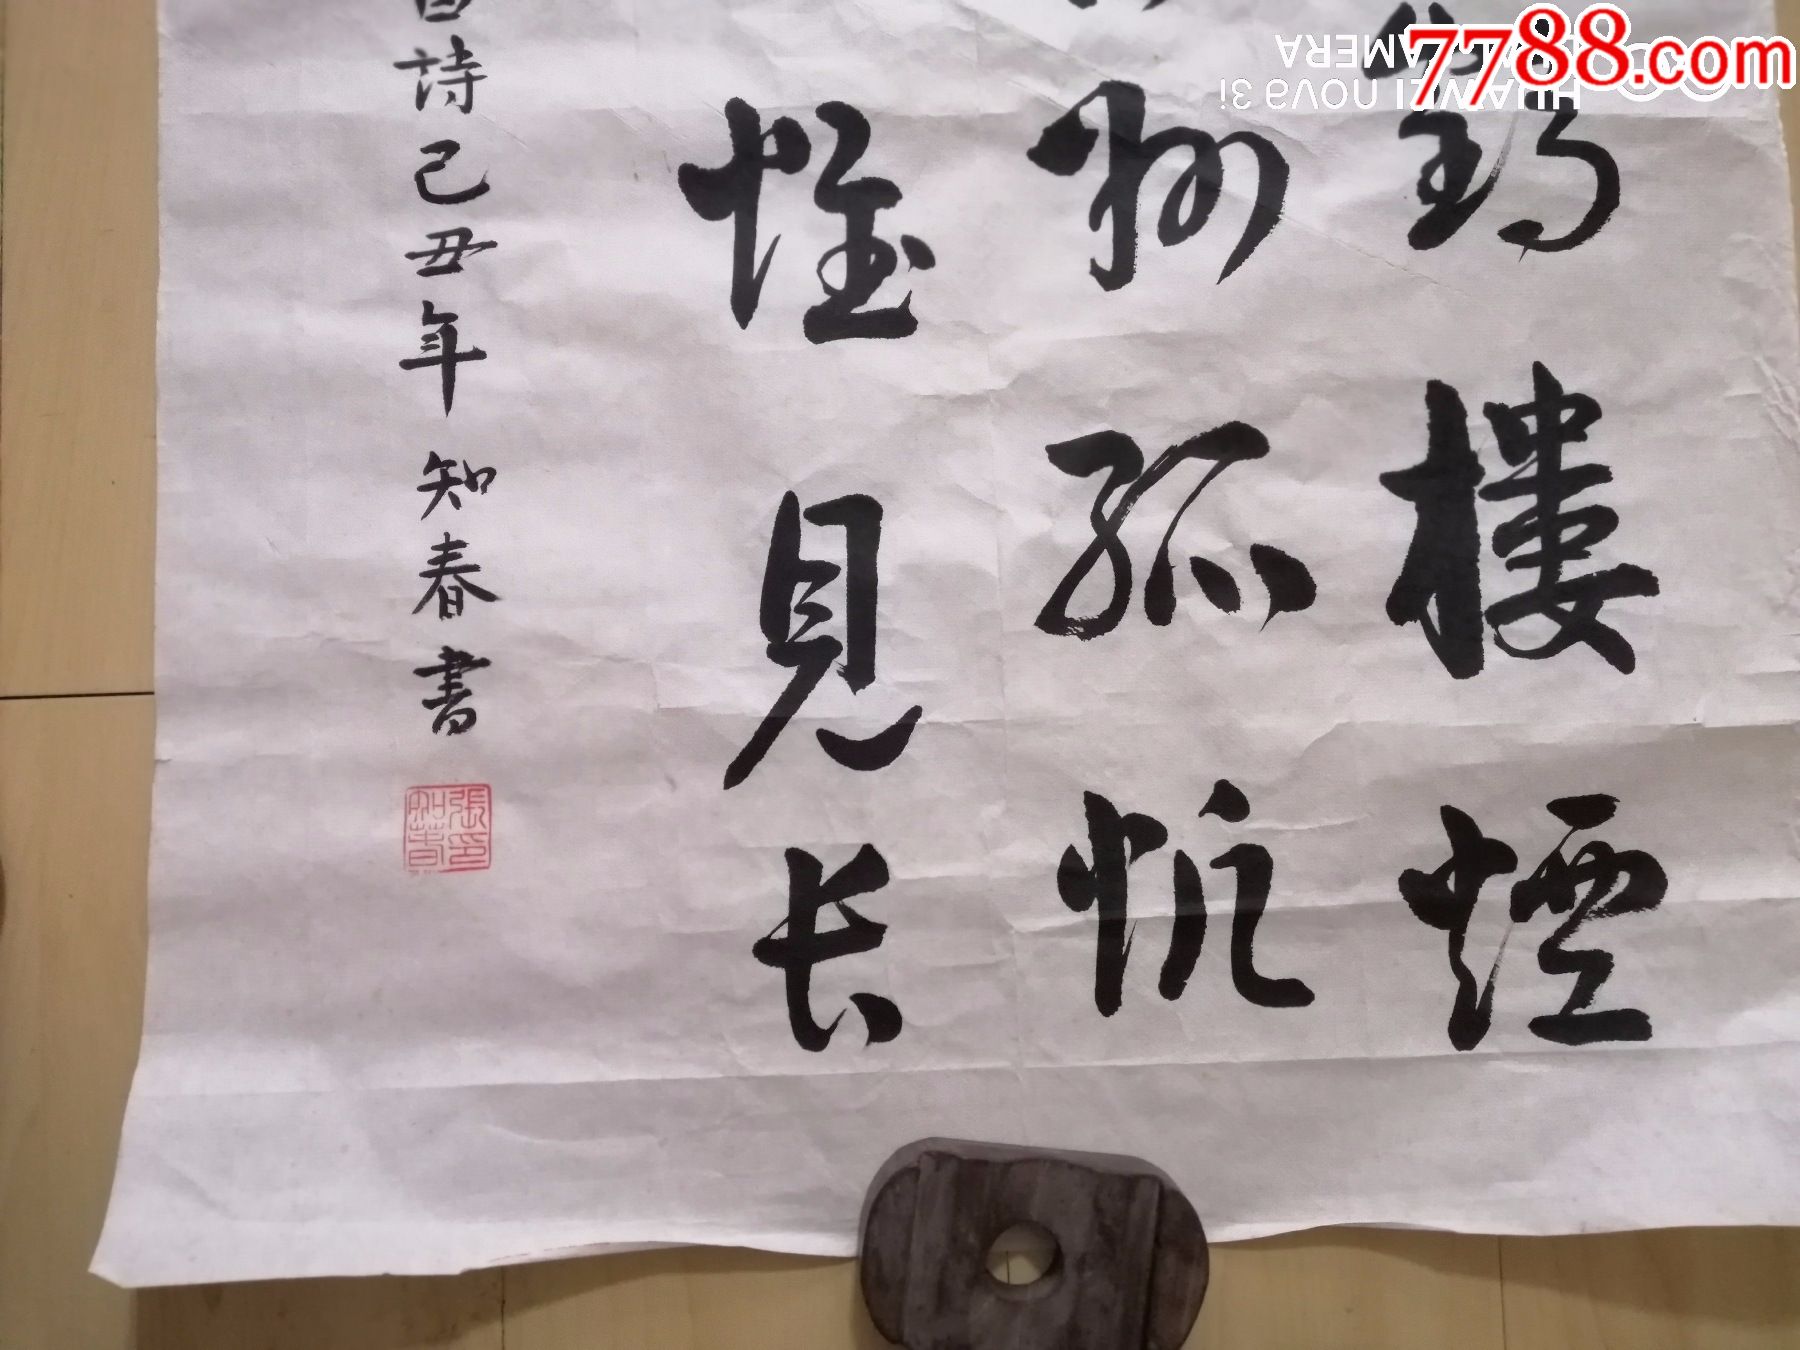 鹤樓煙
州孤帆
惟見长
白詩己丑年知春書
張印知春
7788.com
HUAWEI nova 3i
CAMERA